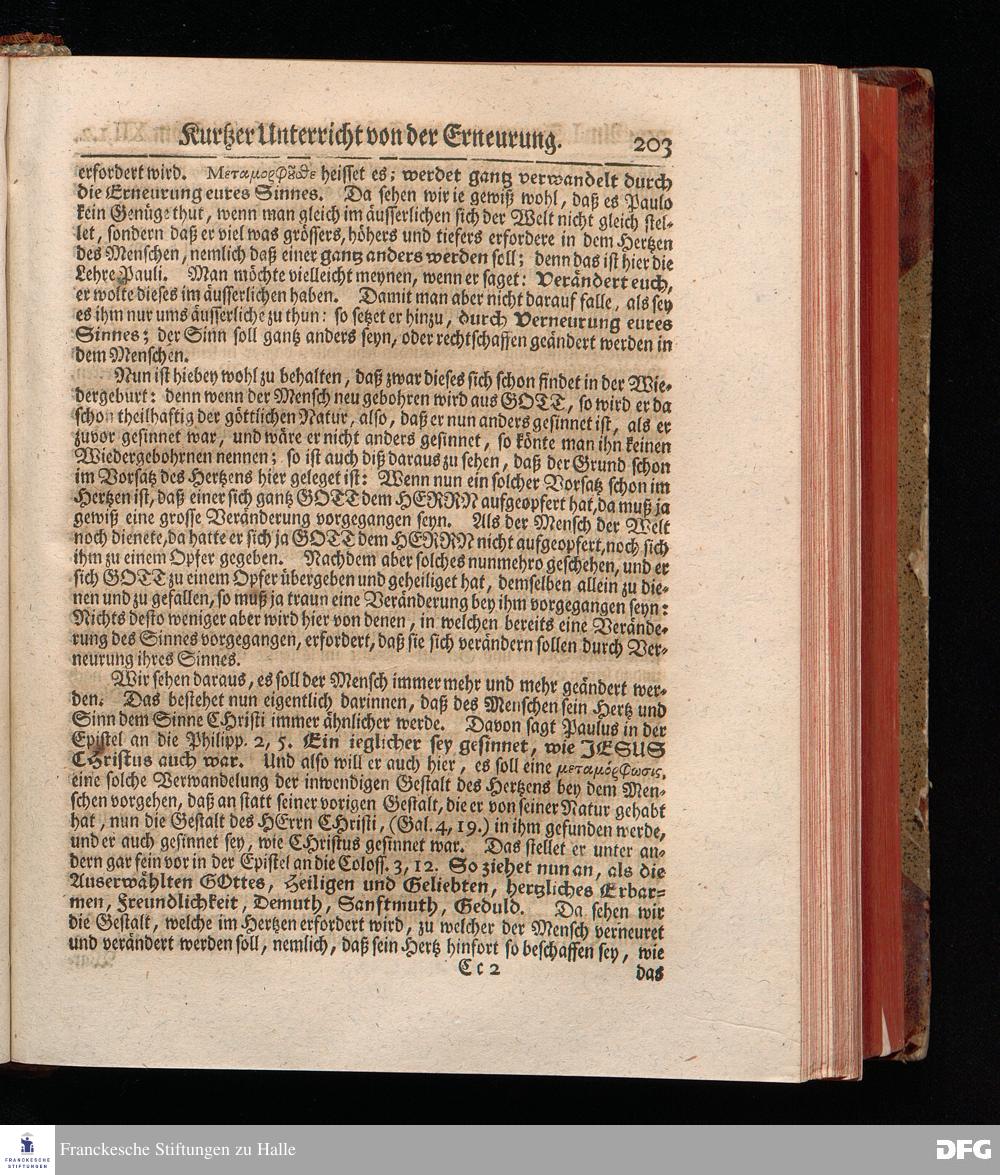 Kurtzer Unterricht von der Erneurung. 203
erfordert wird. Μεταμορφȣ̃ϑε heisset es; werdet gantz verwandelt durch
die Erneurung eures Sinnes. Da sehen wir ie gewiß wohl, daß es Paulo
kein Genüge thut, wenn man gleich im äusserlichen sich der Welt nicht gleich stel-
let, sondern daß er viel was grössers, höhers und tiefers erfordere in dem Hertzen
des Menschen, nemlich daß einer gantz anders werden soll; denn das ist hier die
Lehre Pauli. Man möchte vielleicht meynen, wenn er saget: Verändert euch,
er wolte dieses im äusserlichen haben. Damit man aber nicht darauf falle, als sey
es ihm nur ums äusserliche zu thun: so setzet er hinzu, durch Verneurung eures
Sinnes; der Sinn soll gantz anders seyn, oder rechtschaffen geändert werden in
dem Menschen.
Nun ist hiebey wohl zu behalten, daß zwar dieses sich schon findet in der Wie-
dergeburt: denn wenn der Mensch neu gebohren wird aus GOTT, so wird er da
schon theilhaftig der göttlichen Natur, also, daß er nun anders gesinnet ist, als er
zuvor gesinnet war, und wäre er nicht anders gesinnet, so könte man ihn keinen
Wiedergebohrnen nennen; so ist auch diß daraus zu sehen, daß der Grund schon
im Vorsatz des Hertzens hier geleget ist: Wenn nun ein solcher Vorsatz schon im
Hertzen ist, daß einer sich gantz GOTT dem HERRN aufgeopfert hat, da muß ja
gewiß eine grosse Veränderung vorgegangen seyn. Als der Mensch der Welt
noch dienete, da hatte er sich ja GOTT dem HERRN nicht aufgeopfert, noch sich
ihm zu einem Opfer gegeben. Nachdem aber solches nunmehro geschehen, und er
sich GOTT zu einem Opfer übergeben und geheiliget hat, demselben allein zu die-
nen und zu gefallen, so muß ja traun eine Veränderung bey ihm vorgegangen seyn:
Nichts desto weniger aber wird hier von denen, in welchen bereits eine Verände-
rung des Sinnes vorgegangen, erfordert, daß sie sich verändern sollen durch Ver-
neurung ihres Sinnes.
Wir sehen daraus, es soll der Mensch immer mehr und mehr geändert wer-
den. Das bestehet nun eigentlich darinnen, daß des Menschen sein Hertz und
Sinn dem Sinne CHristi immer ähnlicher werde. Davon sagt Paulus in der
Epistel an die Philipp. 2, 5. Ein ieglicher sey gesinnet, wie JESUS
CHristus auch war. Und also will er auch hier, es soll eine μεταμόρφωσις,
eine solche Verwandelung der inwendigen Gestalt des Hertzens bey dem Men-
schen vorgehen, daß an statt seiner vorigen Gestalt, die er von seiner Natur gehabt
hat, nun die Gestalt des HErrn CHristi, (Gal. 4, 19.) in ihm gefunden werde,
und er auch gesinnet sey, wie CHristus gesinnet war. Das stellet er unter an-
dern gar fein vor in der Epistel an die Coloss. 3, 12. So ziehet nun an, als die
Auserwählten GOttes, Heiligen und Geliebten, hertzliches Erbar-
men, Freundlichkeit, Demuth, Sanftmuth, Geduld. Da sehen wir
die Gestalt, welche im Hertzen erfordert wird, zu welcher der Mensch verneuret
und verändert werden soll, nemlich, daß sein Hertz hinfort so beschaffen sey, wie
Cc 2 das
FRANCKESCHE
STIFTUNGEN
Franckesche Stiftungen zu Halle
DFG